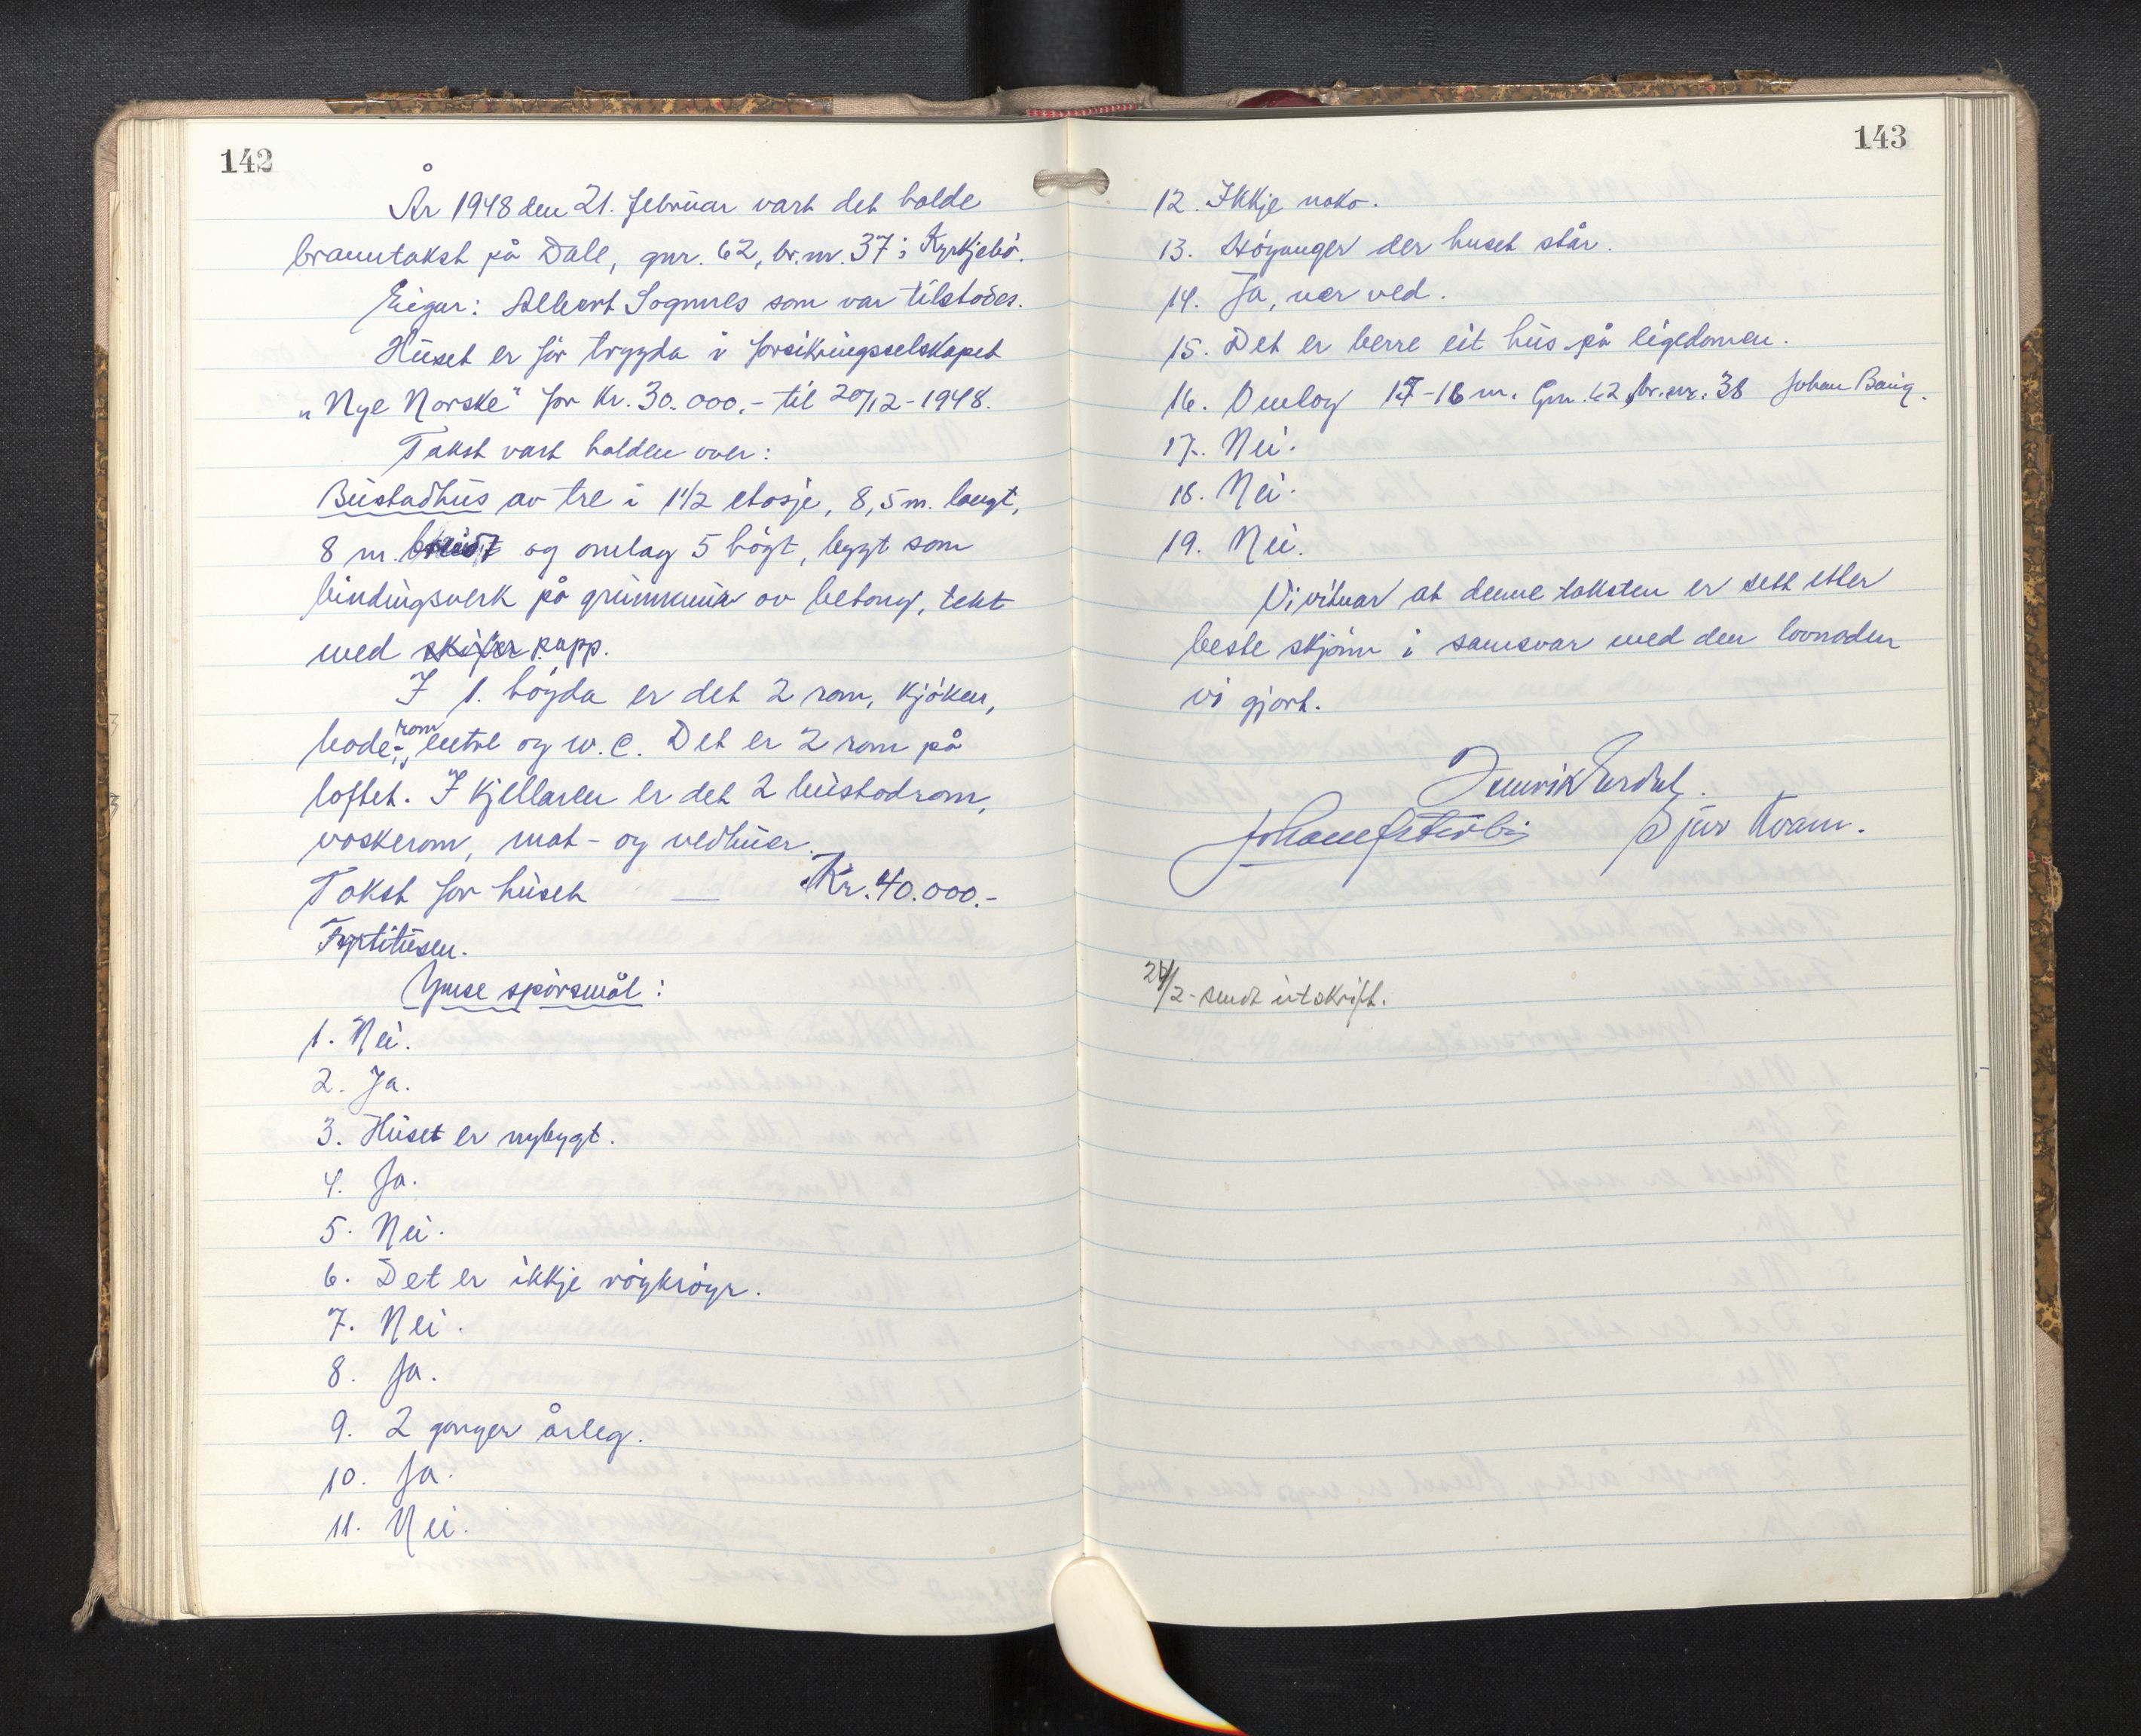 142
År 1948 den 21. februar vart det halde
branntakst på Dale, gnr. 62, br.nr. 37 i Kyrkjebö.
Eigar: Albert Sognnes som var tilstades.
Huset er för trygda i forsikringsselskapet
„Nye Norske" for kr. 30.000.- til 20/12-1948.
Takst vart halden over:
Bustadhus av tre i 1 1/2 etasje, 8,5 m. langt,
8 m. breidt og omlag 5 högt, bygt som
bindingsverk på grunnmur av betong, tekt
med skifer papp.
I 1. högda er det 2 rom, kjöken,
bade-rom, entre og w.c. Det er 2 rom på
loftet. I kjellaren er det 2 bustadrom,
vaskerom, mat- og vedbuer.
Takst for huset — Kr. 40.000.-
Fyrtitusen.
Ymse spörsmål:
1. Nei.
2. Ja.
3. Huset er nybygt.
4. Ja.
5. Nei.
6. Det er ikkje röykröyr.
7. Nei.
8. Ja.
9. 2 gonger årleg.
10. Ja.
11. Nei.
143
12. Ikkje noko.
13. Höyanger der huset står.
14. Ja, nær ved.
15. Det er berre eit hus på eigedomen.
16. Omlag 15-16 m. Gnr. 62, br.nr. 38 Johan
17. Nei.
18. Nei.
19. Nei.
Vi vitnar at denne taksten er sett etter
beste skjönn i samsvar med den lovnaden
vi gjort.
Johan Sjur Kvam.
24/2- sendt utskrift.